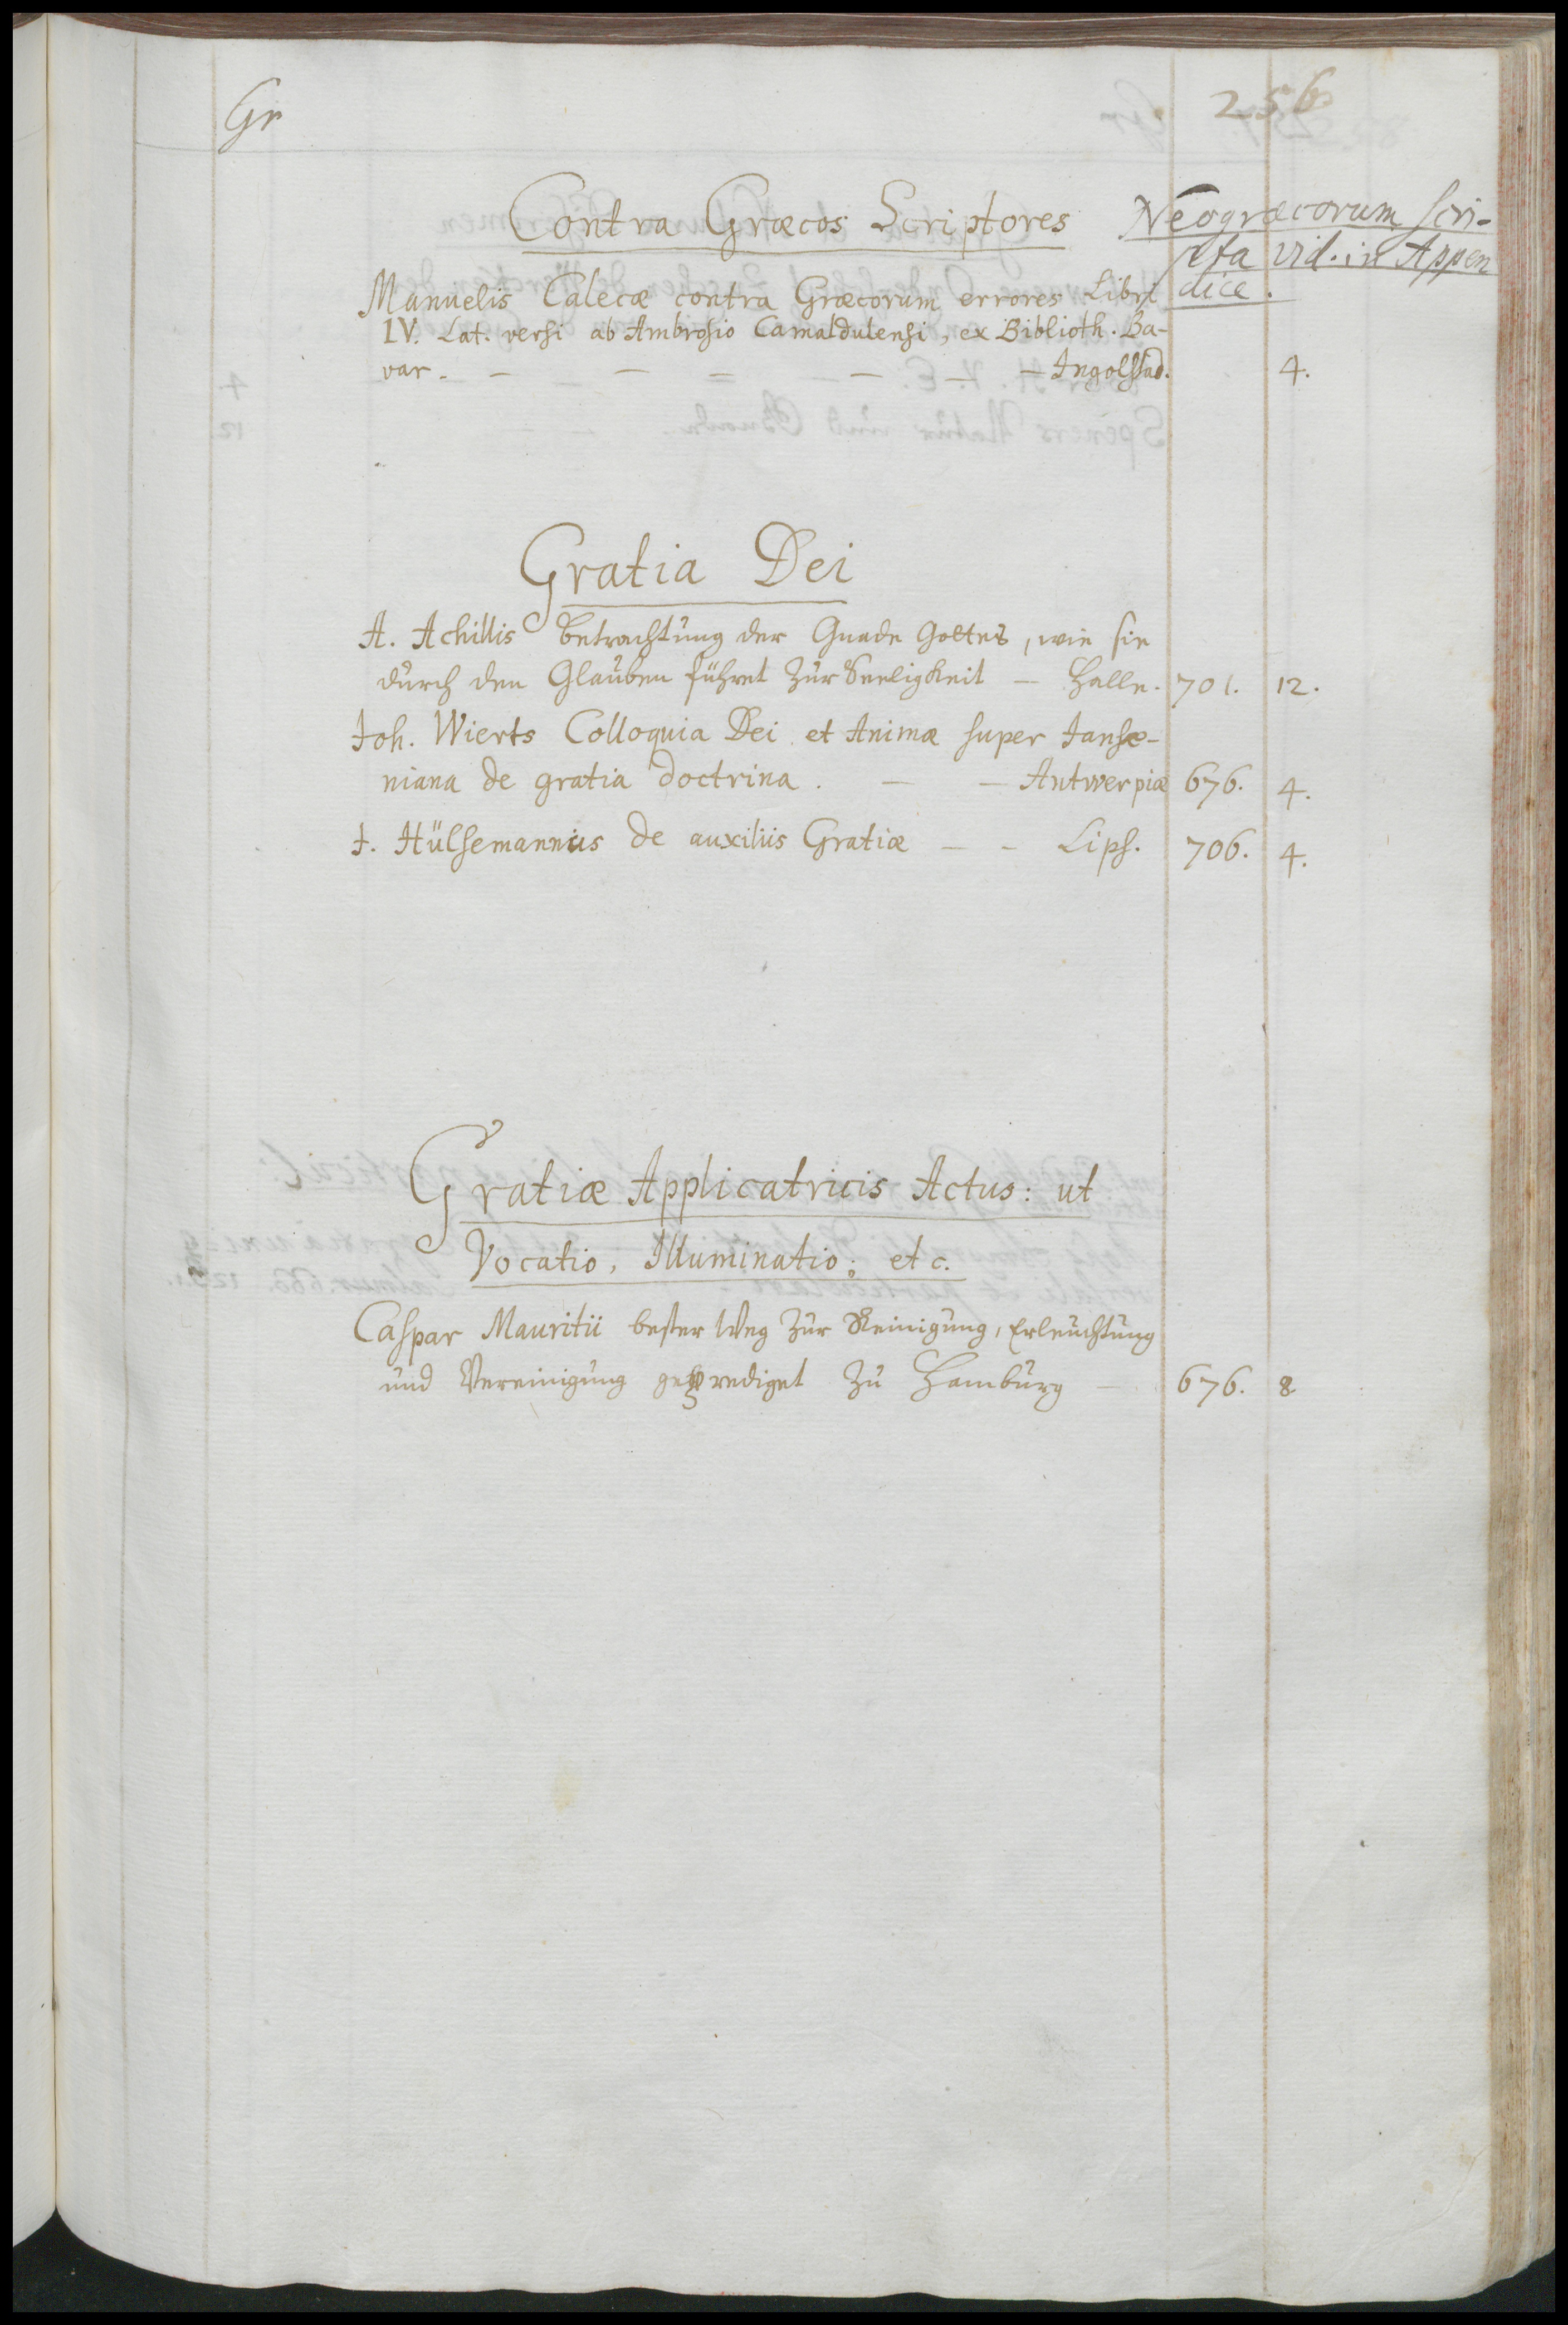 Gr
256
Contra Græcos Scriptores
Neogræcorum scri-
pta vid. in Appen
dice.
Manuelis Calecæ contra Græcorum errores Libri
IV. Lat. versi ab Ambrosio Camaldulensi, ex Biblioth. Ba-
var. - - - - - Ingolstad. 4.
Gratia Dei
A. Achillis Betrachtung der Gnade Gottes, wie sie
durch den Glauben führet zur Seeligkeit - Halle. 701. 12.
Joh. Wierts Colloquia Dei et Animæ super Janse-
niana de gratia doctrina. - - Antwerpiæ 676. 4.
J. Hülsemannius de auxiliis Gratiæ - - Lips. 706. 4.
Gratiæ Applicatricis Actus: ut
Vocatio, Illuminatio; etc.
Caspar Mauritii bester Weg zur Reinigung, Erleuchtung
und Vereinigung geprediget zu Hamburg - 676. 8